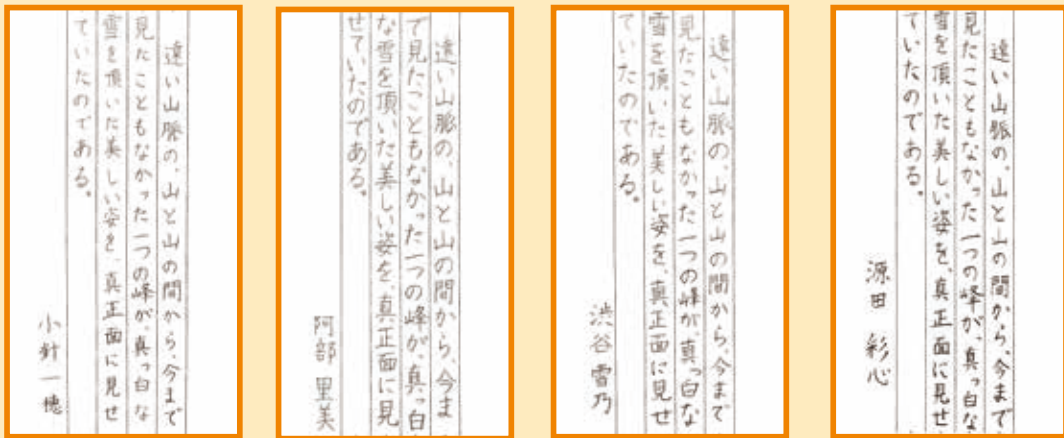 遠い山脈の、山と山の間から、今まで
見たこともなかった一つの峰が、真っ白な
雪を頂いた美しい姿を、真正面に見せ
ていたのである。
小針一穂
遠い山脈の、山と山の間から、今ま
で見たこともなかった一つの峰が、真っ白
な雪を頂いた美しい姿を、真正面に見
せていたのである。
阿部 里美
遠い山脈の、山と山の間から、今まで
見たこともなかった一つの峰が、真っ白な
雪を頂いた美しい姿を、真正面に見せ
ていたのである。
渋谷雪乃
遠い山脈の、山と山の間から、今まで
見たこともなかった一つの峰が、真っ白な
雪を頂いた美しい姿を、真正面に見せ
ていたのである。
源田 彩心